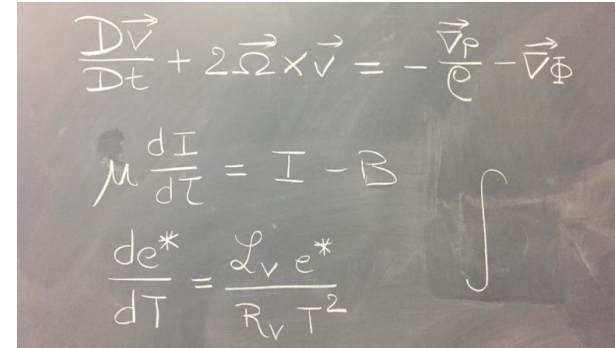 Dv⃗/Dt + 2Ω⃗ × v⃗ = - ∇⃗p/ρ - ∇⃗Φ
μ dI/dτ = I - B
∫
de*/dT = ℒv e*/Rv T²